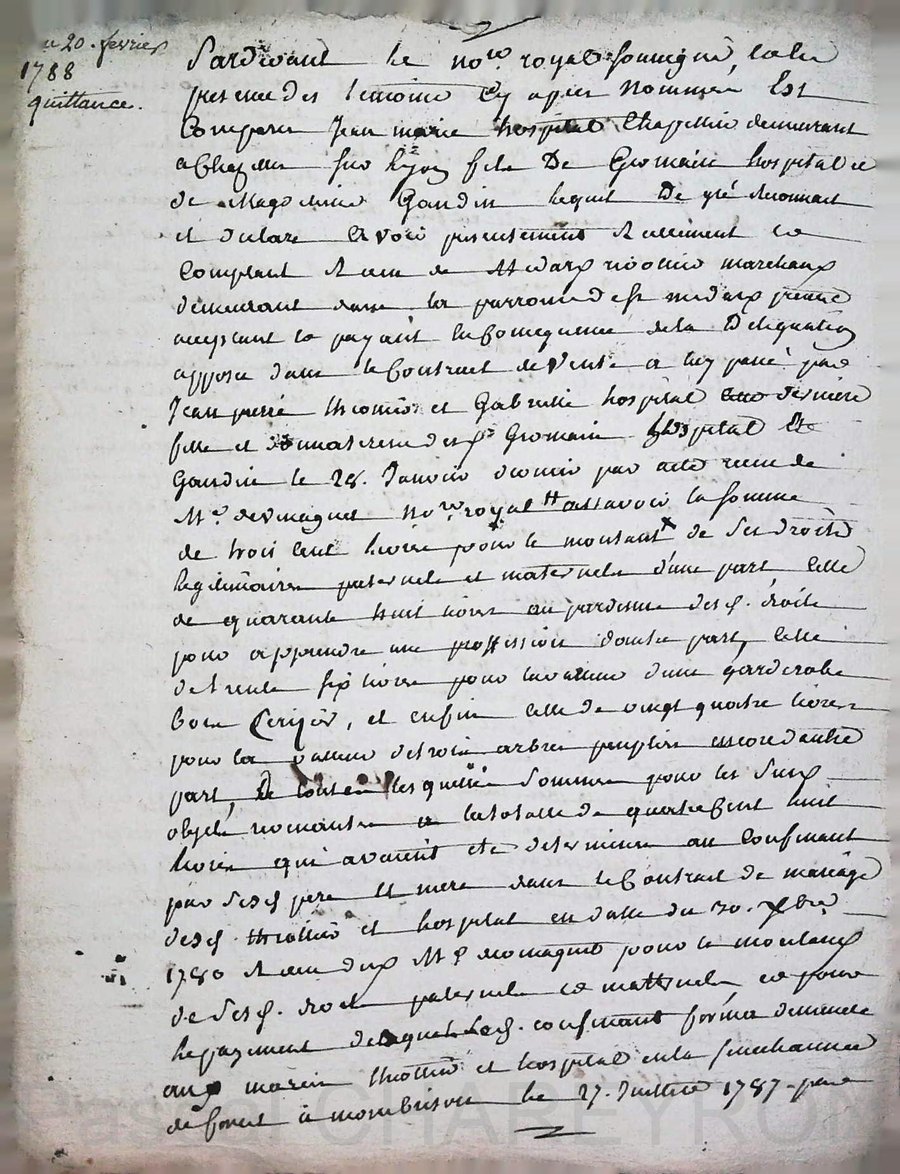 20. fevrier
1788
quittance.
Pardevant le no.re royal soussigné, &
presence des temoins cy apres nommés Est
comparu Jean marie hospital Chapellier demeurant
a Chazelles sur Lyon fils De Germain hospital
de Magdeleine Gaudin lequel De gré reconnait
et declare avoir presentement Reellement
comptant Receu de marchand
demeurant dans la parroisse de st medard
acceptant & payant en consequence de la Deleguation
apposée dans le Contract de Vente a luy passé par
Jean pierre thiollier et Gabrielle hospital derniere
fille et donnatresse desd. Germain hospital Et
Gaudin le 28. Janvier dernier par acte receu
M.e no.re royal assavoir la somme
de trois cent livres pour le montant de Ses droits
legitimaires paternels et maternels d'une part, Celle
de quarante huit livres au pardessus desd. droits
pour apprendre une proffession dautre part, celle
de trente six livres pour la valleur dune garderobe
bois Cerizier, et enfin celle de vingt quatre livres
pour la valleur de trois arbres peupliers encore dautre
part, De toutes lesquelles sommes pour les Susd.
objets revenantes a la totalle de quatre Cent huit
livres qui avaient été determinées au Confinant
par Sesd. pere et mere dans le Contract de mariage
desd. thiollier et hospital en datte du
1780 Receu dud. M.e pour le montant
de Sesd. droits paternels et maternels, et pour
le payement desquels led. confinant forma demande
aux mariés thiollier et hospital en la senechaussée
de forest a montbrison le 27. Juillet 1787. par
Pascal CHAPEYRON